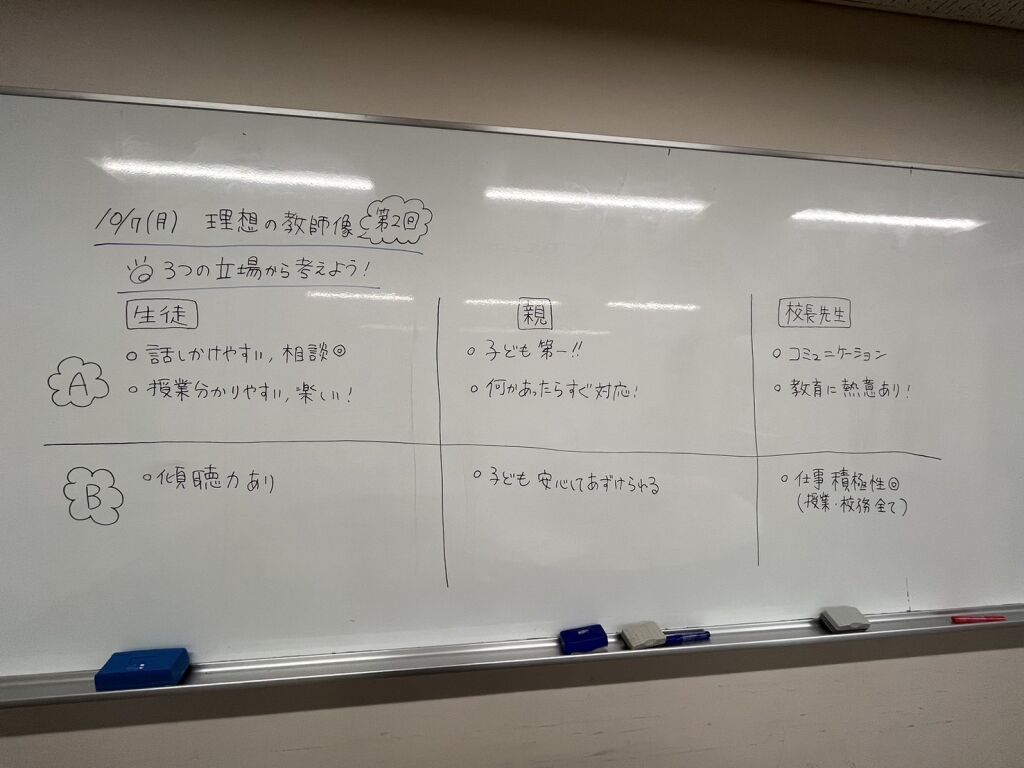 10/7(月) 理想の教師像 第2回
3つの立場から考えよう!
生徒 親 校長先生
A
○ 話しかけやすい, 相談◎
○ 授業分かりやすい, 楽しい!
○ 子ども第一!!
○ 何かあったらすぐ対応!
○ コミュニケーション
○ 教育に熱意あり!
B
○ 傾聴力あり
○ 子ども安心してあずけられる
○ 仕事積極性◎
(授業・校務全て)